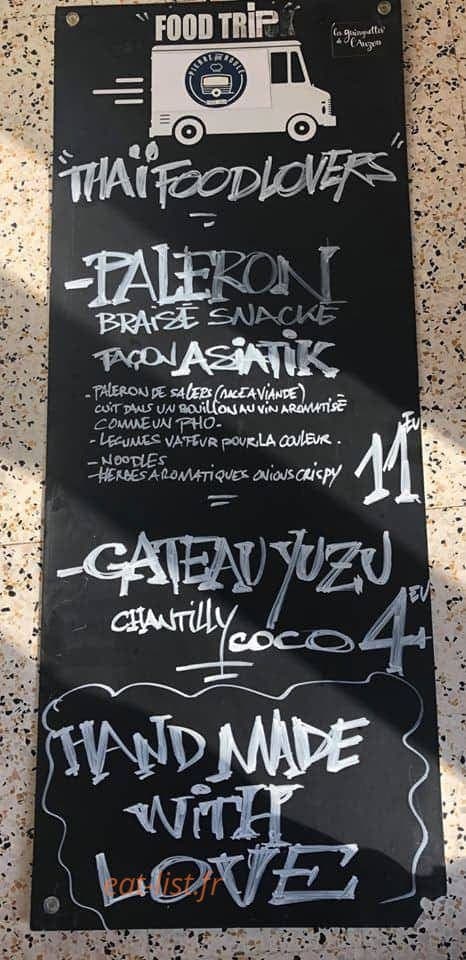 "FOOD TRIP"
La guinguette
de
l'Auzon
PIERRE QUI ROULE
"THAÏ FOODLOVERS"
-PALERON
BRAISÉ SNACKÉ
FAÇON ASIATIK
- PALERON DE SALERS (RACE A VIANDE)
CUIT DANS UN BOUILLON AU VIN AROMATISÉ
COMME UN PHO -
- LEGUMES VAPEUR POUR LA COULEUR.
- NOODLES
- HERBES AROMATIQUES ONIONS CRISPY
11 EU
-GATEAU YUZU
CHANTILLY COCO 4 EU
HAND MADE
WITH
LOVE
eat-list.fr